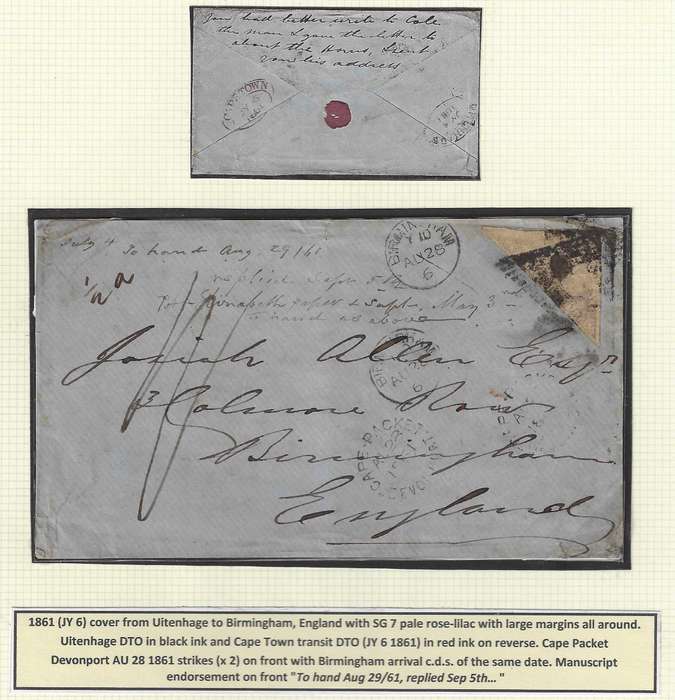 You had better write to Cole
the man I gave the letter to
about the Horns, I sent
you his address
CAPE TOWN
July 4
To hand Aug. 29/61
replied Sept 5th
May 3rd
to hand as above
1/2 a
BIRMINGHAM
AU 28
6
Josiah Allen Esqr
3 Colmore Row
Birmingham
England
BIRMINGHAM
CAPE PACKET
DEVONPORT
1861 (JY 6) cover from Uitenhage to Birmingham, England with SG 7 pale rose-lilac with large margins all around.
Uitenhage DTO in black ink and Cape Town transit DTO (JY 6 1861) in red ink on reverse. Cape Packet
Devonport AU 28 1861 strikes (x 2) on front with Birmingham arrival c.d.s. of the same date. Manuscript
endorsement on front "To hand Aug 29/61, replied Sep 5th… "